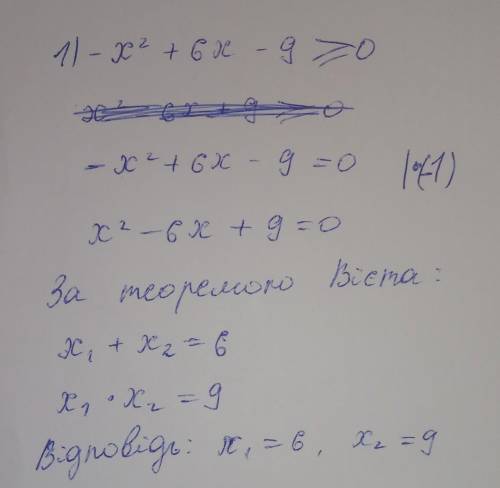 1) - x² + 6x - 9 ≥ 0
x² - 6x + 9 ≥ 0
- x² + 6x - 9 = 0 |·(-1)
x² - 6x + 9 = 0
За теоремою Вієта:
x₁ + x₂ = 6
x₁ · x₂ = 9
Відповідь: x₁ = 6, x₂ = 9